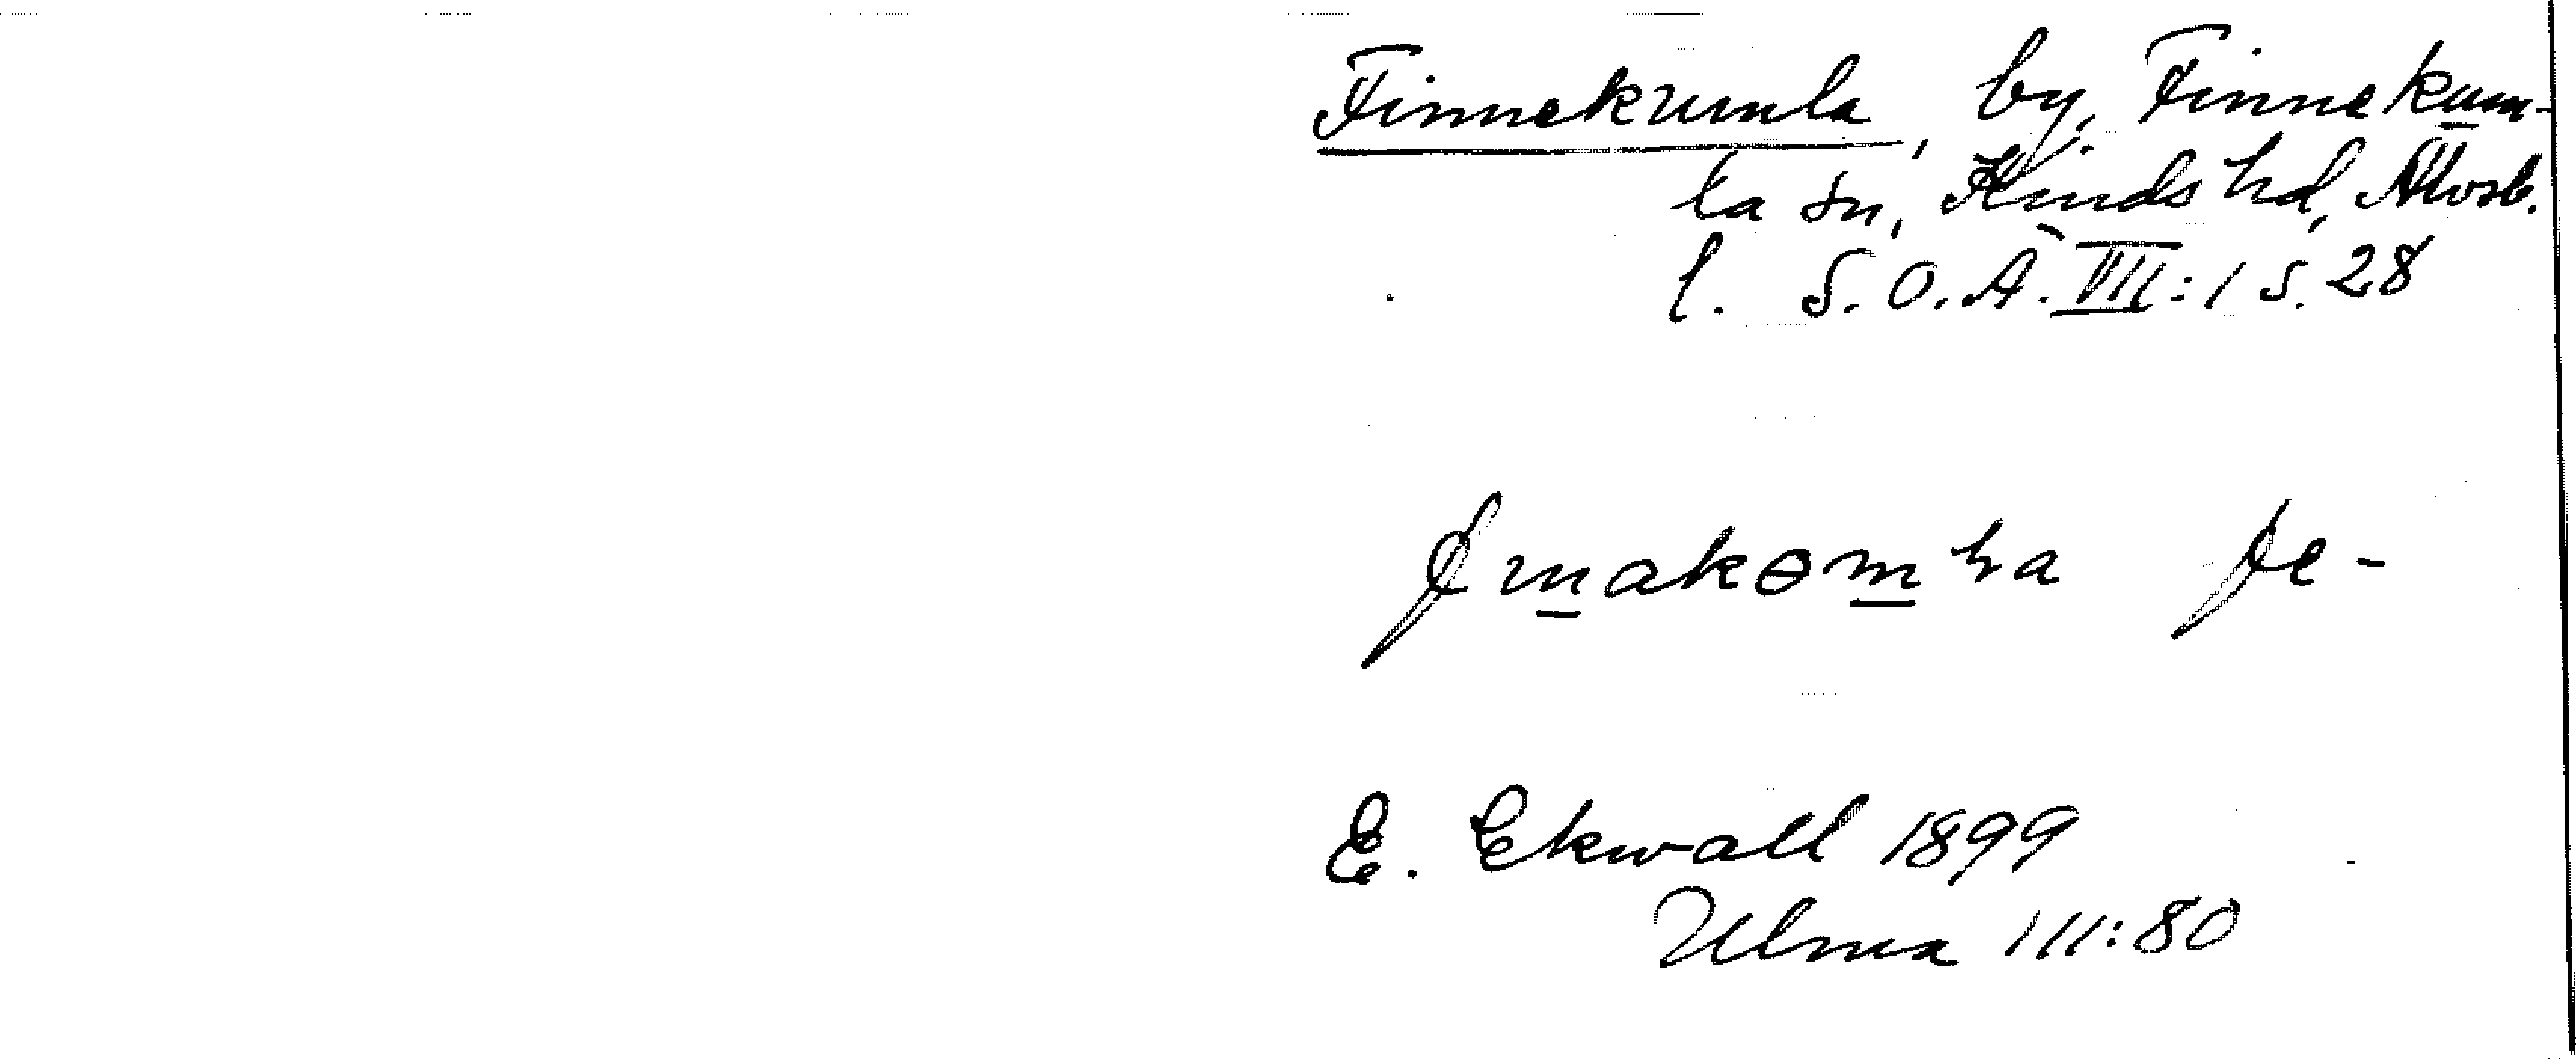 Finnekumla, by, Finnekum-
la sn, Kinds hd, Älvsb.
l. S.O.Ä. VII:1 s. 28
E. Ekwall 1899
Ulma 111:80